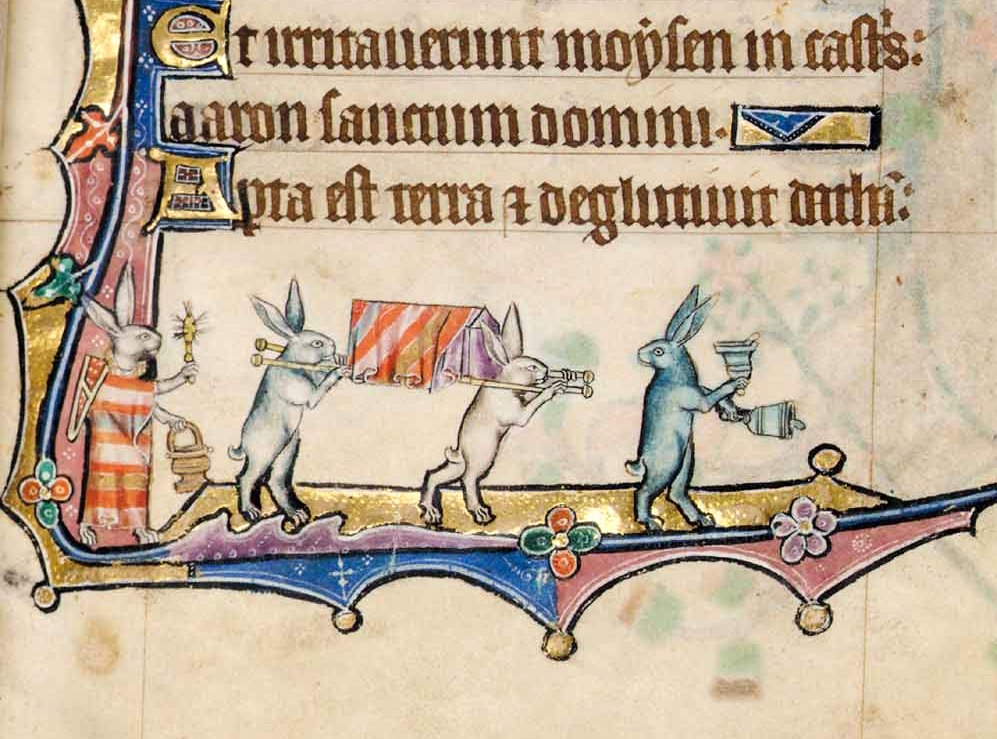 Et irritauerunt moẏſen in caſtꝰs:
aaron ſanctum domini.
Apta eſt terra ⁊ deglutiuit dathā: